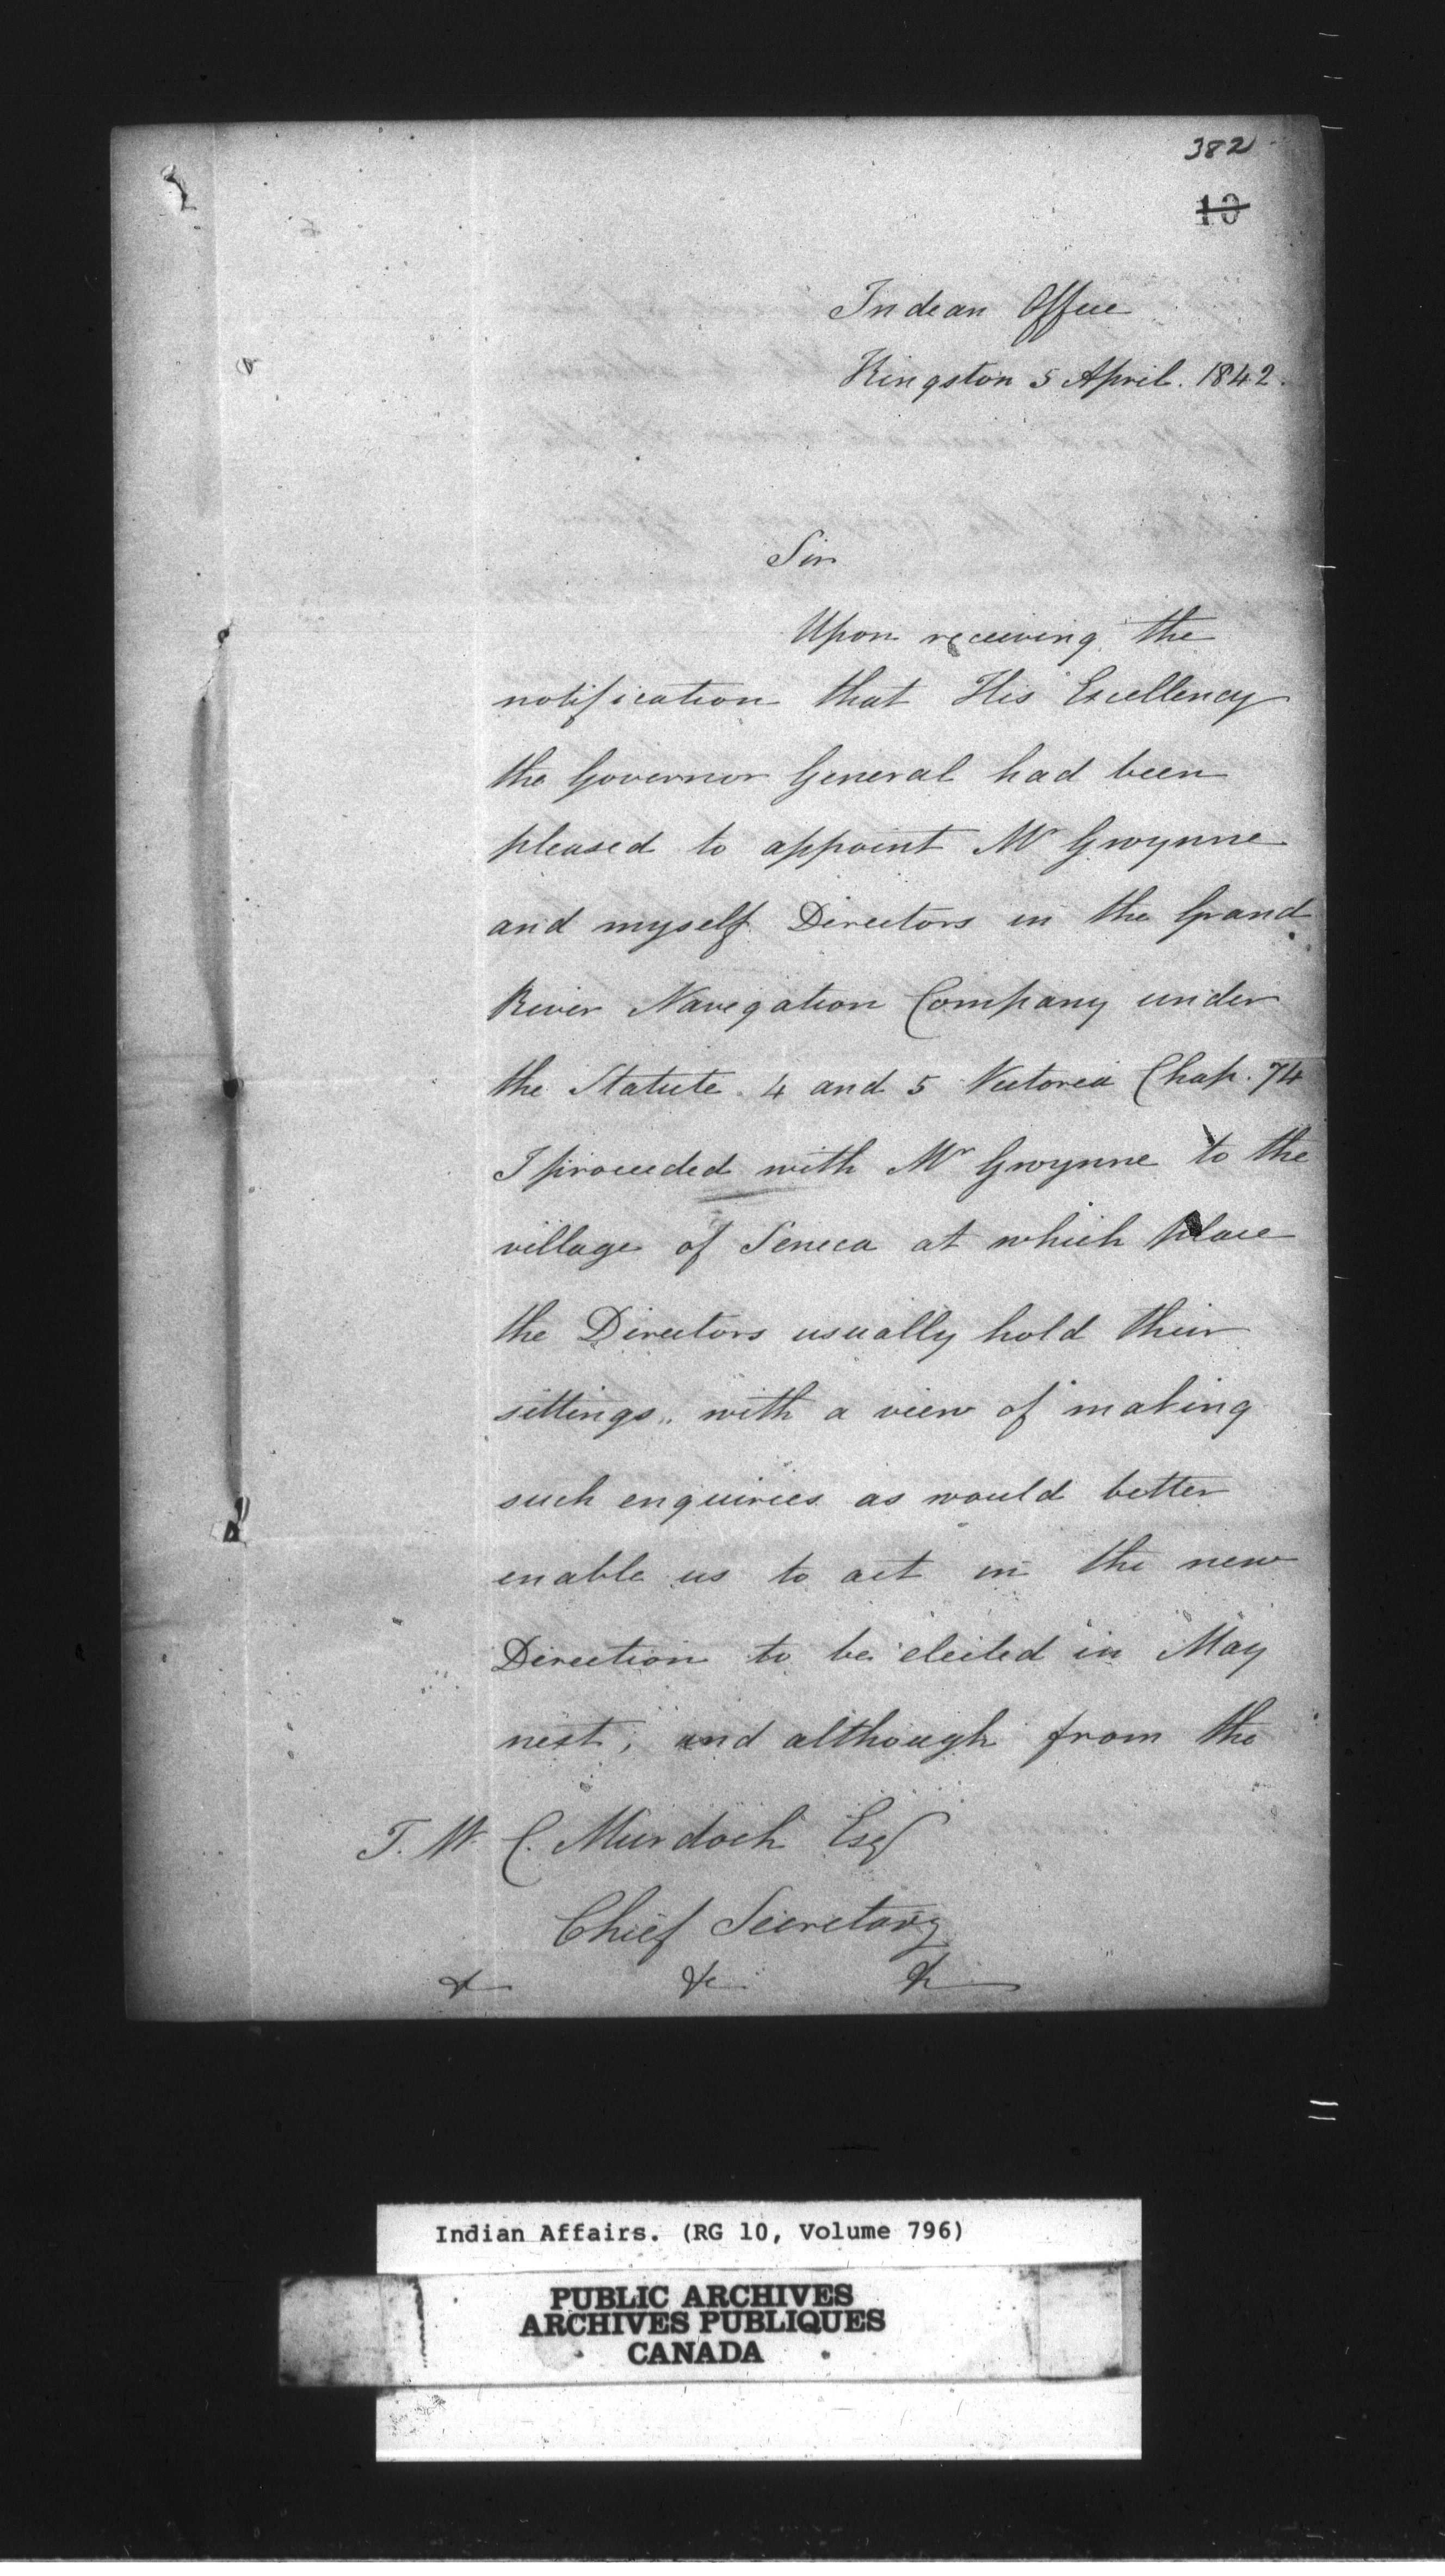 382
10
Indian Office
Kingston 5 April. 1842.
Sir
Upon receiving the
notification that His Excellency
the Governor General had been
pleased to appoint Mr Gwynne
and myself Directors in the Grand
River Navigation Company under
the Statute 4 and 5 Victoria Chap. 74
I proceeded with Mr Gwynne to the
village of Seneca at which place
the Directors usually hold their
sittings, with a view of making
such enquiries as would better
enable us to act in the new
Direction to be elected in May
next; and although from the
T. W. C. Murdoch Esq
Chief Secretary
& &c &c
Indian Affairs. (RG 10, Volume 796)
PUBLIC ARCHIVES
ARCHIVES PUBLIQUES
CANADA